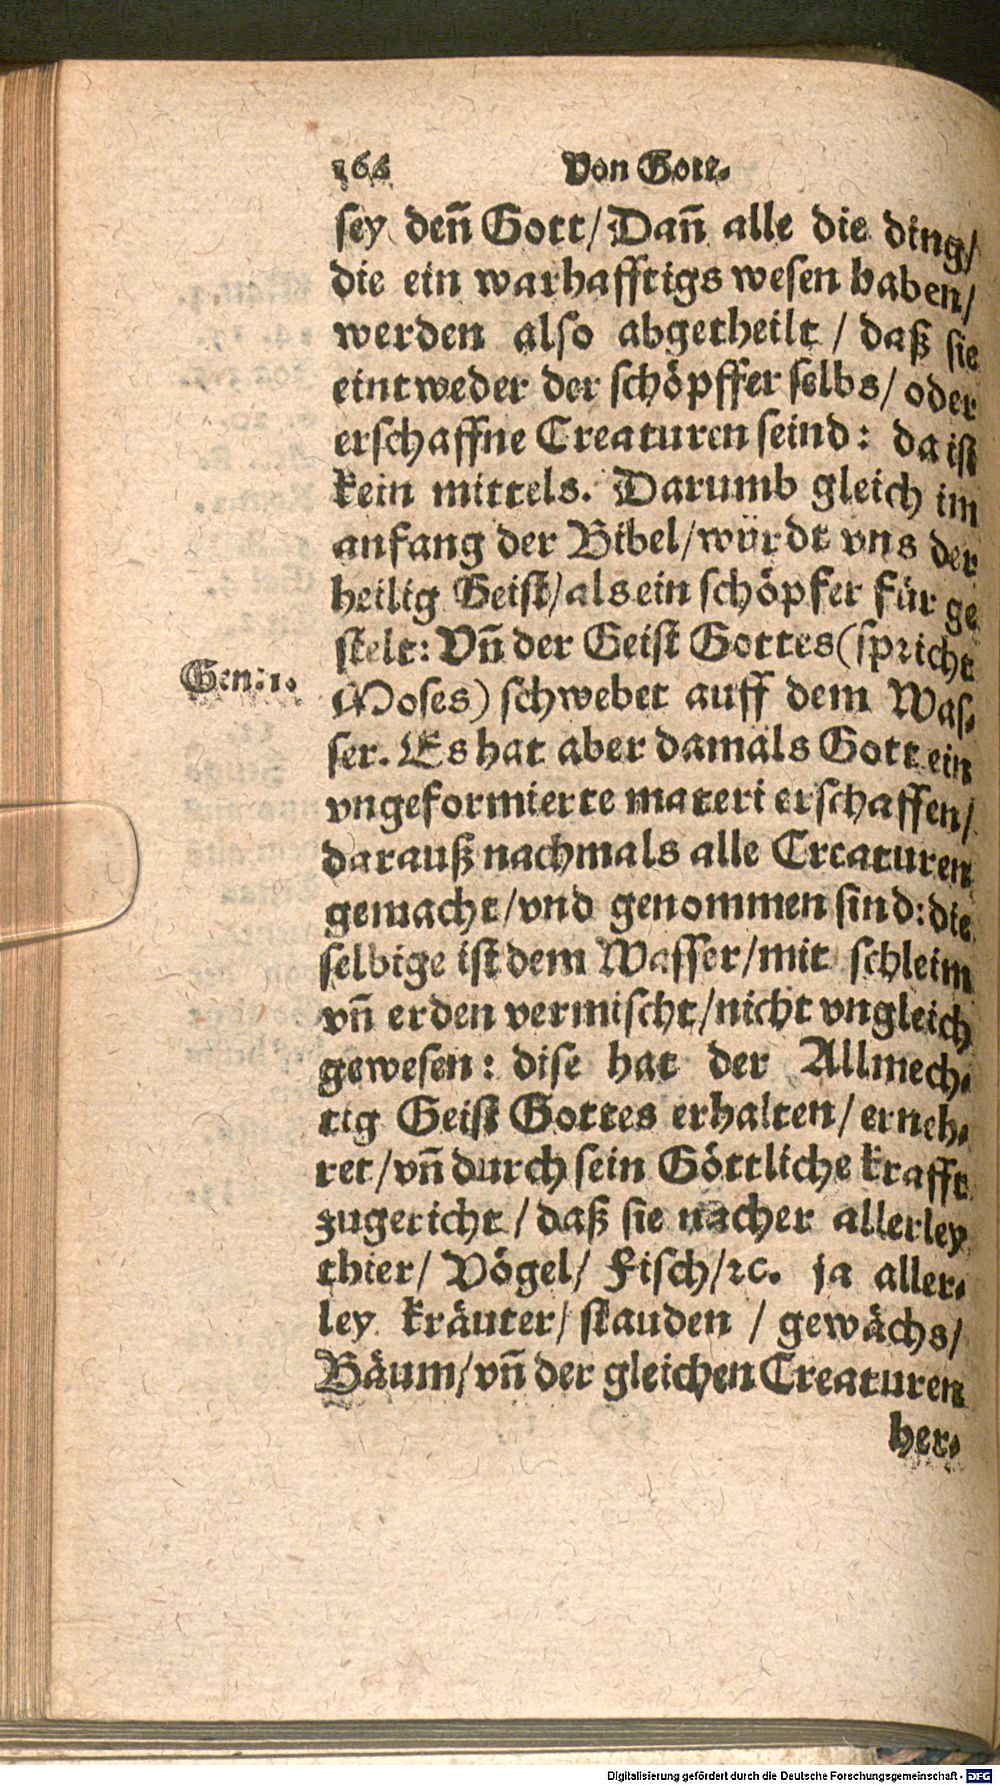 166 Von Gott.
sey deñ Gott/Dañ alle die ding/
die ein warhafftigs wesen haben/
werden also abgetheilt / daß sie
eintweder der schöpffer selbs/ oder
erschaffne Creaturen seind: da ist
kein mittels. Darumb gleich im
anfang der Bibel/würdt vns der
heilig Geist/als ein schöpfer für ge
stelt: Vñ der Geist Gottes(spricht
Gen:1.
Moses) schwebet auff dem Was-
ser. Es hat aber damals Gott ein
vngeformierte materi erschaffen/
darauß nachmals alle Creaturen
gemacht/vnd genommen sind:die
selbige ist dem Wasser/mit schleim
vñ erden vermischt/nicht vngleich
gewesen: dise hat der Allmech-
tig Geist Gottes erhalten/ erneh-
ret/vñ durch sein Göttliche krafft
zugericht / daß sie nacher allerley
thier/ Vögel/ Fisch/ꝛc. ja aller-
ley kräuter/ stauden / gewächs/
Bäum/vñ der gleichen Creaturen
her-
Digitalisierung gefördert durch die Deutsche Forschungsgemeinschaft - DFG